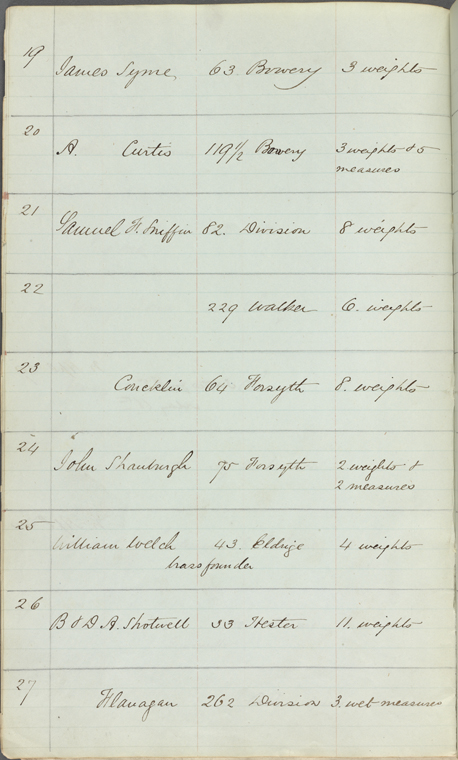 19
James Syme, 63. Bowery 3 weights
20
A. Curtis 119½ Bowery 3 weights & 5
measures
21
Samuel H. Sniffin 82. Division 8 weights
22
229 Walker 6. weights
23
Concklin 64 Forsyth 8. weights
24
John Shanburgh 75 Forsyth 2 weights &
2 measures
25
William Welch 43. Eldrige 4 weights
brassfounder
26
B & D A. Shotwell 33 Hester 11. weights
27
Flanagan 262 Division 3. wet measures